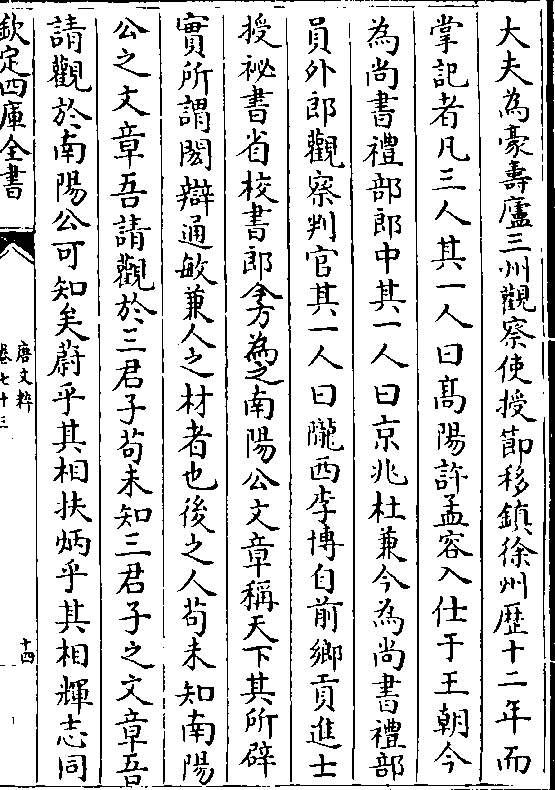 大夫為豪壽廬三州觀察使授節移鎮徐州歴十二年而
掌記者凡三人其一人曰髙陽許孟容入仕于王朝今
為尚書禮部郎中其一人曰京兆杜兼今為尚書禮部
員外郎觀察判官其一人曰隴西李博自前鄉貢進士
授祕書省校書郎今方為之南陽公文章稱天下其所辟
實所謂閎辯通敏兼人之材者也後之人苟未知南陽
公之文章吾請觀於三君子苟未知三君子之文章吾
請觀於南陽公可知矣蔚乎其相扶炳乎其相輝志同
欽定四庫全書
唐文粹
卷七十三
十四